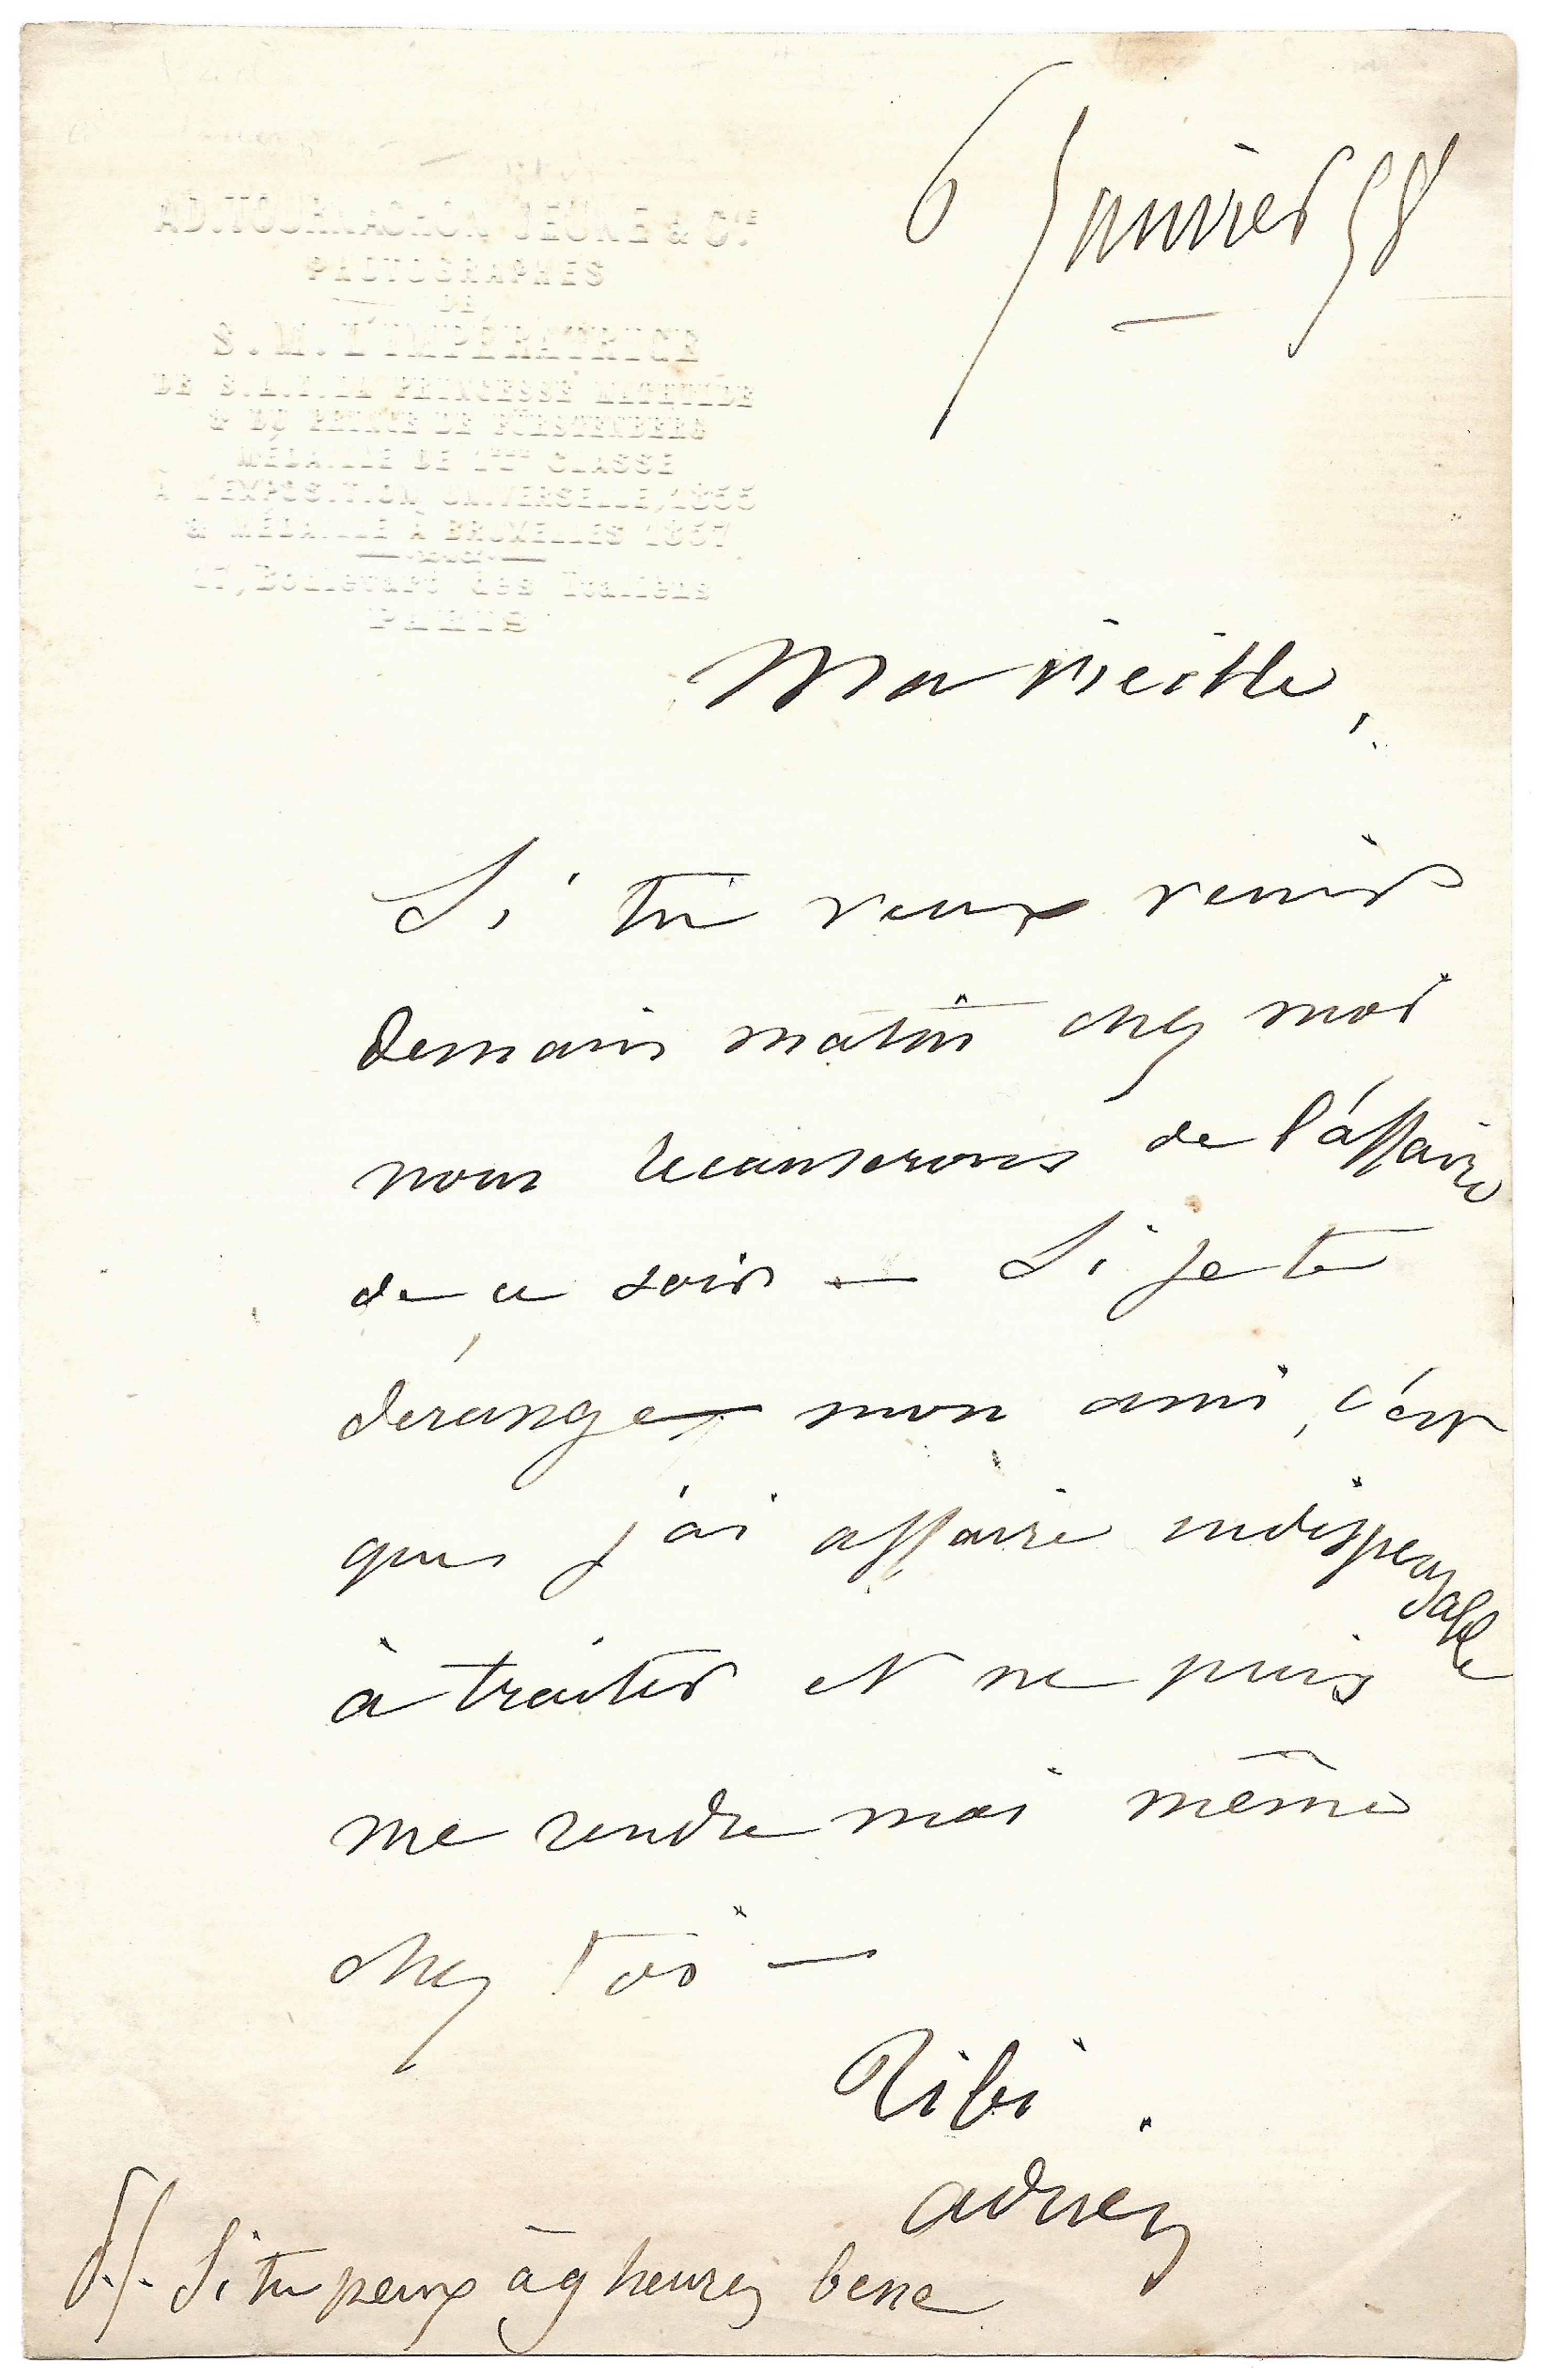 AD. TOURNACHON JEUNE & CIE
PHOTOGRAPHES
DE
S. M. L'IMPÉRATRICE
DE S.A.I. LA PRINCESSE MATHILDE
& DU PRINCE DE FÜRSTENBERG
MÉDAILLE DE 1ERE CLASSE
À L'EXPOSITION UNIVERSELLE, 1855
& MÉDAILLE À BRUXELLES 1857
17, Boulevart des Italiens
PARIS
6 Janvier 58
Ma vieille,
Si tu veux venir
demain matin chez moi
nous recauserons de l'affaire
de ce soir — Si je te
dérange mon ami, c'est
que j'ai affaire indispensable
à traiter et ne puis
me rendre moi même
chez toi —
Tibi.
adrien
P.S. Si tu peux à 9 heures bene